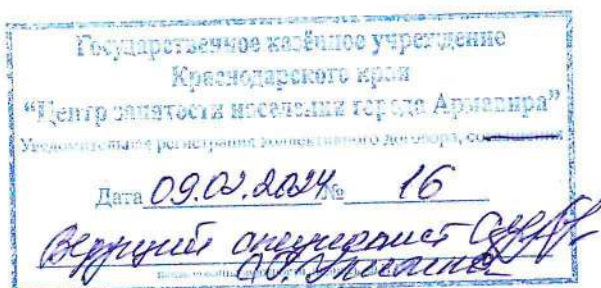 Государственное казённое учреждение
Краснодарского края
“Центр занятости населения города Армавира”
Уведомительная регистрация коллективного договора, соглашения
Дата 09.02.2024 № 16
Ведущий специалист